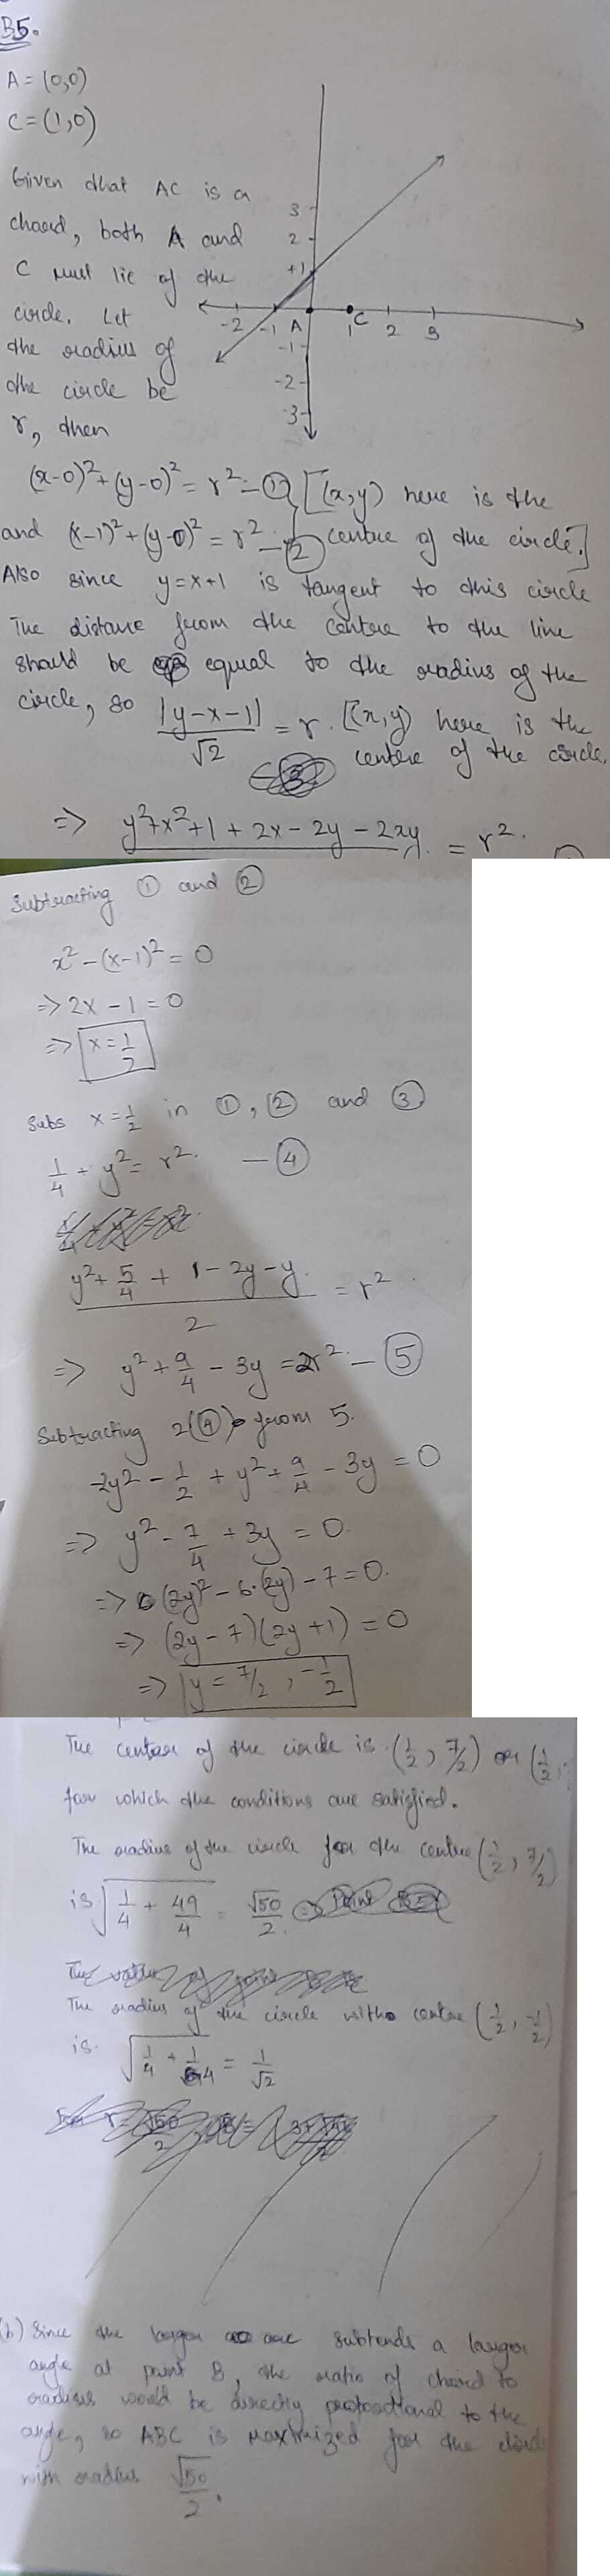 B5.
A = (0,0)
C = (1,0)
Given that AC is a
chord, both A and
C must lie of the
circle. Let
the radius of
the circle be
r, then
3
2
+1
-2 -1 A 1 C 2 3
-1
-2
-3
(x-0)² + (y-0)² = r² - ① [(x,y) here is the
and (x-1)² + (y-0)² = r² - ② centre of the circle.]
Also since y = x+1 is tangent to this circle
The distance from the centre to the line
should be equal to the radius of the
circle, so |y-x-1| / √2 = r. [(x,y) here is the
centere of the circle.
=> y²+x²+1+2x-2y-2xy = r².
Subtracting ① and ②
x² - (x-1)² = 0
=> 2x - 1 = 0
=> x = 1/2
Subs x = 1/2 in ①, ② and ③
1/4 + y² = r². - ④
y² + 5/4 + 1 - 2y - y. / 2 = r²
=> y² + 9/4 - 3y = 2r². - ⑤
Subtracting 2(④) from 5.
-2y² - 1/2 + y² + 9/4 - 3y = 0
=> y² - 7/4 + 3y = 0.
=> (2y)² - 6·(2y) - 7 = 0.
=> (2y-7)(2y+1) = 0
=> y = 7/2, -1/2
The center of the circle is (1/2, 7/2) or (1/2,
for which the conditions are satisfied.
The radius of the circle for the centre (1/2, 7/2)
is √(1/4 + 49/4) = √50/2
The radius of the circle with centre (1/2, -1/2)
is. √(1/4 + 1/4) = 1/√2
(b) Since the larger arc subtends a larger
angle at point B, the ratio of chord to
radius would be directly proportional to the
angle, so ABC is maximized for the circle
with radius √50/2.